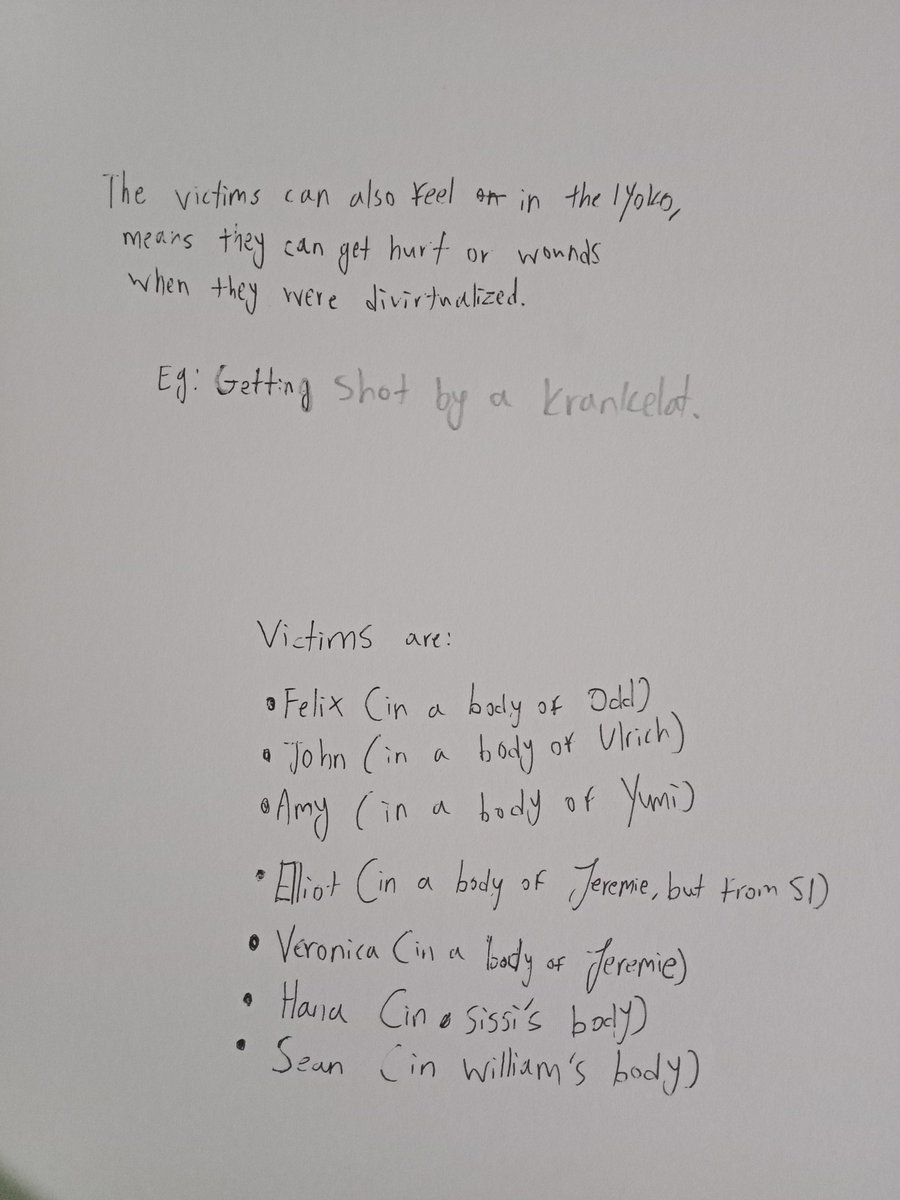 The victims can also feel in the lYoko,
means they can get hurt or wounds
when they were divirtualized.
Eg: Getting shot by a krankelat.
Victims are:
• Felix (in a body of Odd)
• John (in a body of Ulrich)
• Amy (in a body of Yumi)
• Elliot (in a body of Jeremie, but from S1)
• Veronica (in a body of Jeremie)
• Hana (in sissi's body)
• Sean (in william's body)